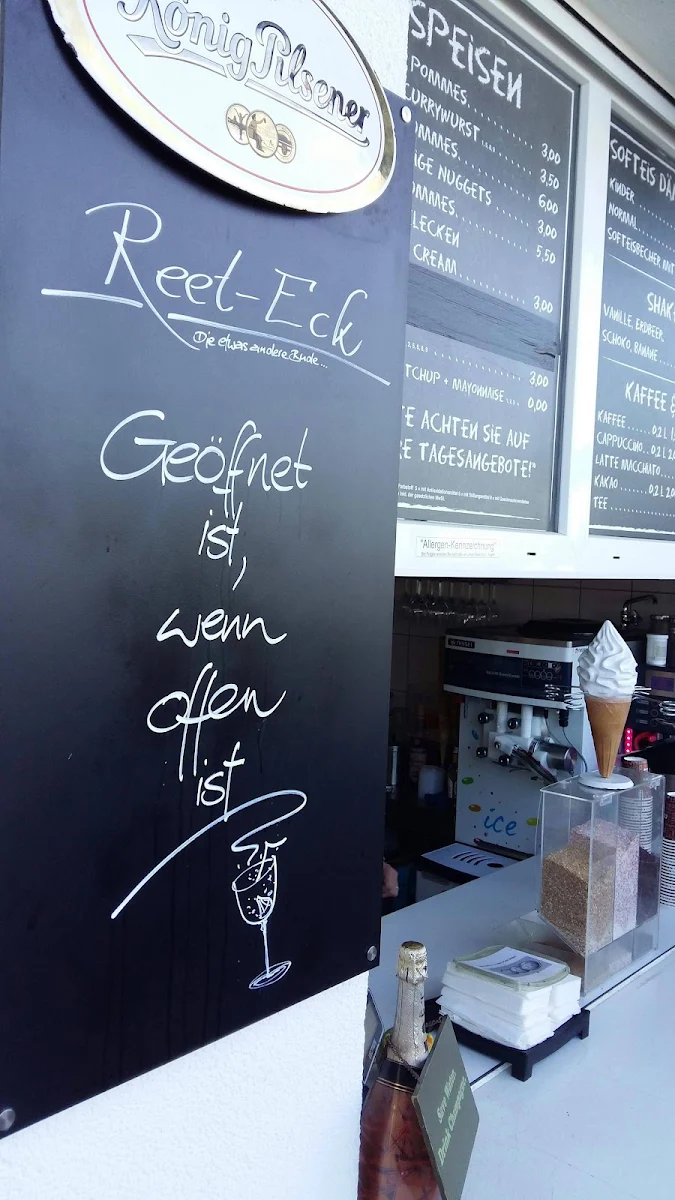 König Pilsener
Reet-Eck
Die etwas andere Bude...
Geöffnet
ist,
wenn
offen
ist
SPEISEN
POMMES
3,00
CURRYWURST
3,50
OMMES
6,00
NUGGETS
3,00
OMMES
5,50
LECKEN
CREAM
3,00
3,00
TCHUP + MAYONNAISE
0,00
E ACHTEN SIE AUF
RE TAGESANGEBOTE!"
"Allergen-Kennzeichnung"
SOFTEIS DÄ
KINDER
NORMAL
SOFTEISBECHER MIT
SHAK
VANILLE, ERDBEER,
SCHOKO, BANANE
KAFFEE &
KAFFEE ...... 0,2 L
CAPPUCCINO .. 0,2
LATTE MACCHIATO
KAKAO ..... 0,2 L
TEE
ice
Save Water
Drink Champagne